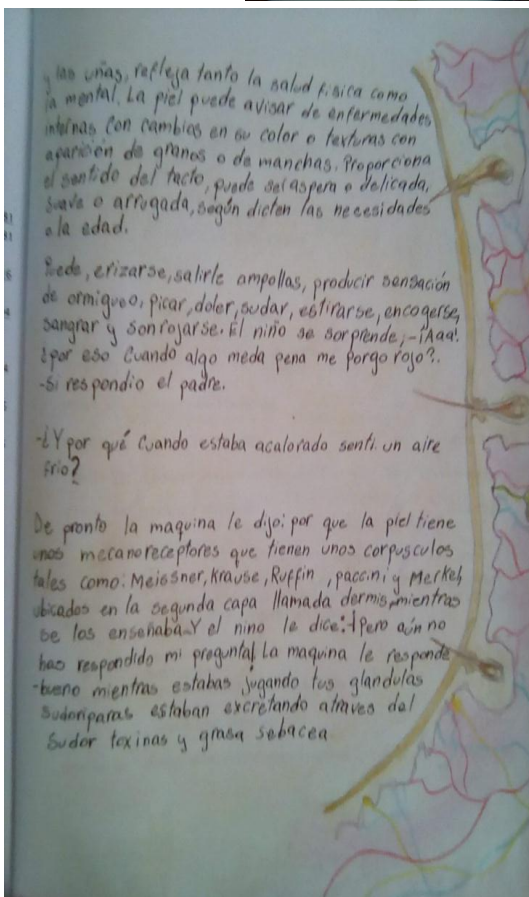 y las uñas, refleja tanto la salud fisica como
la mental. La piel puede avisar de enfermedades
internas con cambios en su color o texturas con
aparicion de granos o de manchas. Proporciona
el sentido del tacto, puede ser aspera o delicada,
suave o arrugada, según dicten las necesidades
o la edad.
Puede, erizarse, salirle ampollas, producir sensación
de ormigueo, picar, doler, sudar, estirarse, encogerse,
sangrar y sonrojarse. El niño se sorprende; -¡Aaa!
¿por eso cuando algo meda pena me porgo rojo?.
-Si respondio el padre.
-¿Y por qué cuando estaba acalorado senti un aire
frio?
De pronto la maquina le dijo: por que la piel tiene
unos mecanoreceptores que tienen unos corpusculos
tales como: Meissner, Krause, Ruffin, paccini y Merkel,
ubicados en la segunda capa llamada dermis, mientras
se las enseñaba. Y el nino le dice: ¡pero aún no
has respondido mi pregunta! La maquina le responde
-bueno mientras estabas jugando tus glandulas
sudoriparas estaban excretando atraves del
sudor toxinas y grasa sebacea